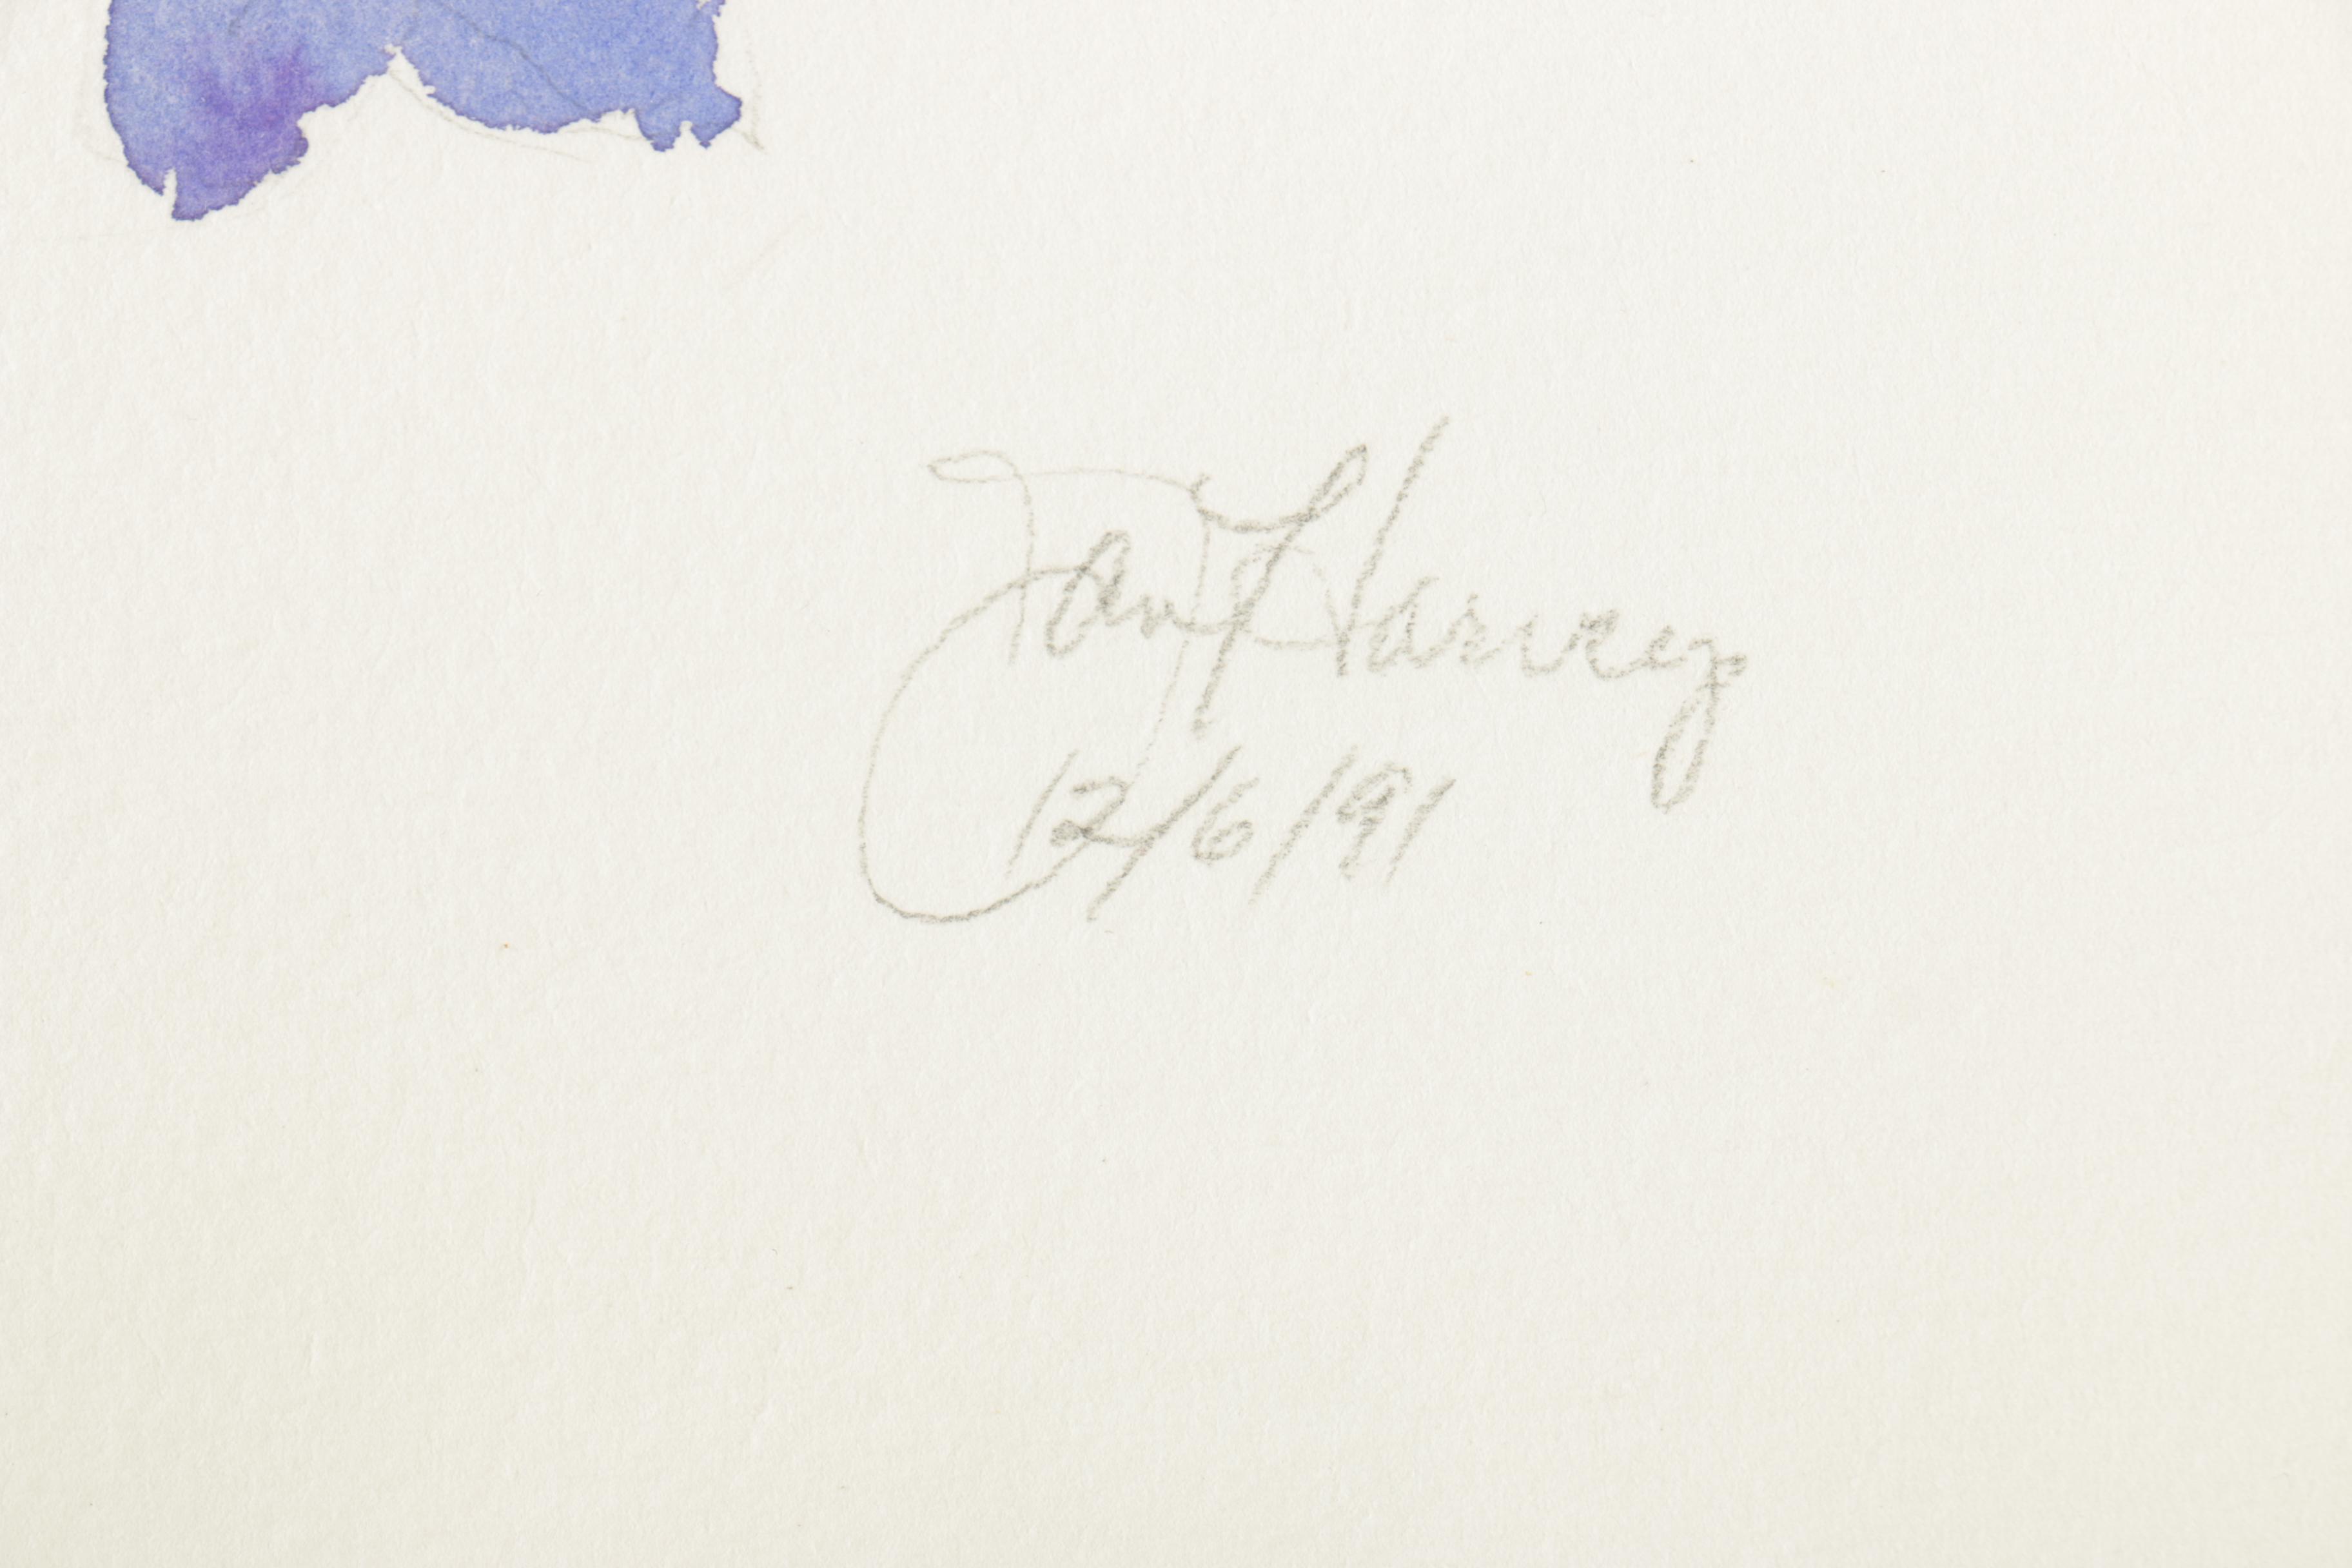 Jan Harvey
12/6/91